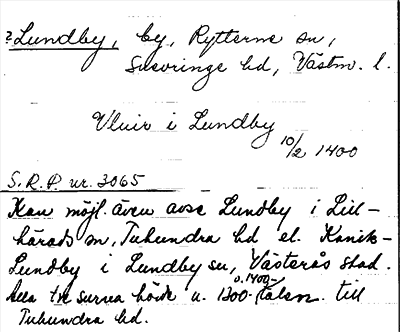 ? Lundby, by, Rytterne sn,
Snevringe hd, Västm. l.
Vluir i Lundby
10/2 1400
S.R.P. nr. 3065
Kan möjl. även avse Lundby i Lill-
härads sn, Tuhundra hd el. Kanik-
Lundby i Lundby sn, Västerås stad.
Alla tre socnar hörde u. 1300- o. 1400-talen till
Tuhundra hd.